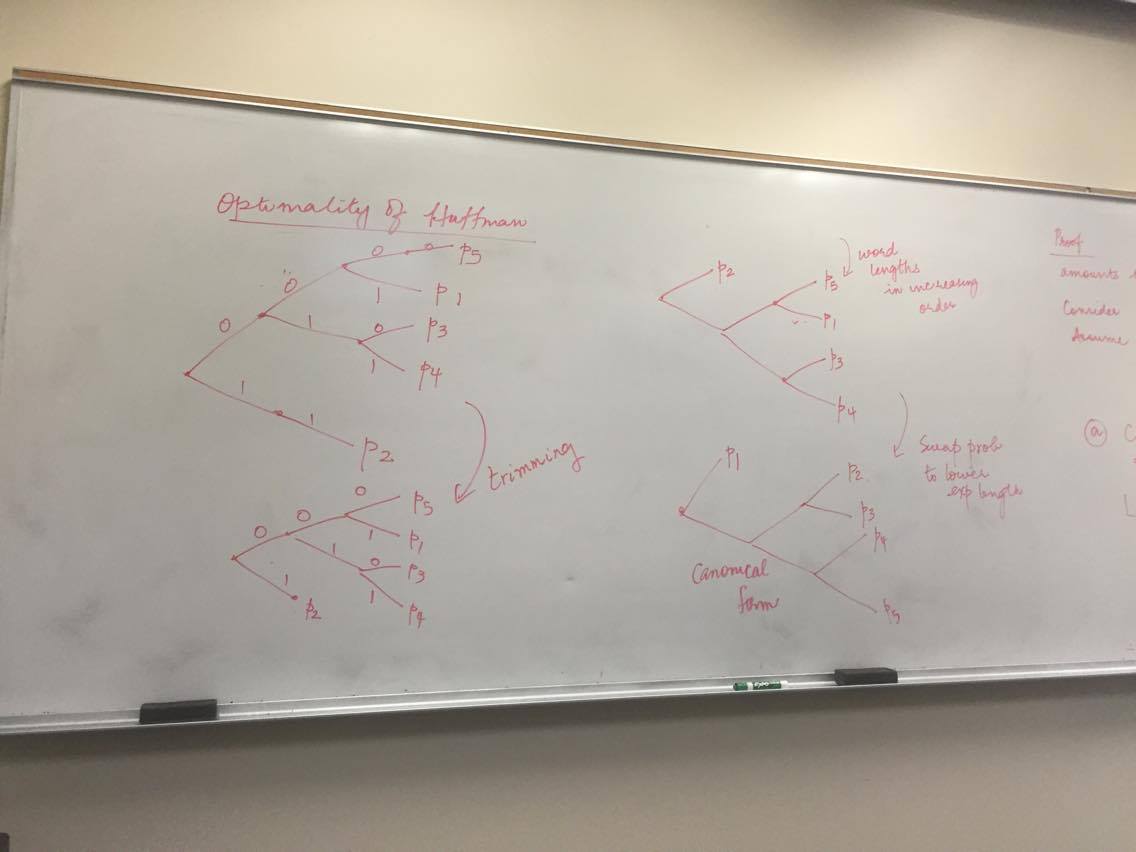 Optimality of Huffman
0 0 0 0 p5
1 p1
1 0 p3
1 p4
1 1 p2
trimming
0 0 0 p5
1 p1
1 0 p3
1 p4
1 p2
word
lengths
in increasing
order
p2
p5
p1
p3
p4
Swap prob
to lower
exp length
p1
p2
p3
p4
p5
Canonical
form
Proof
amounts
Consider
Assume
(a) C
EXPO